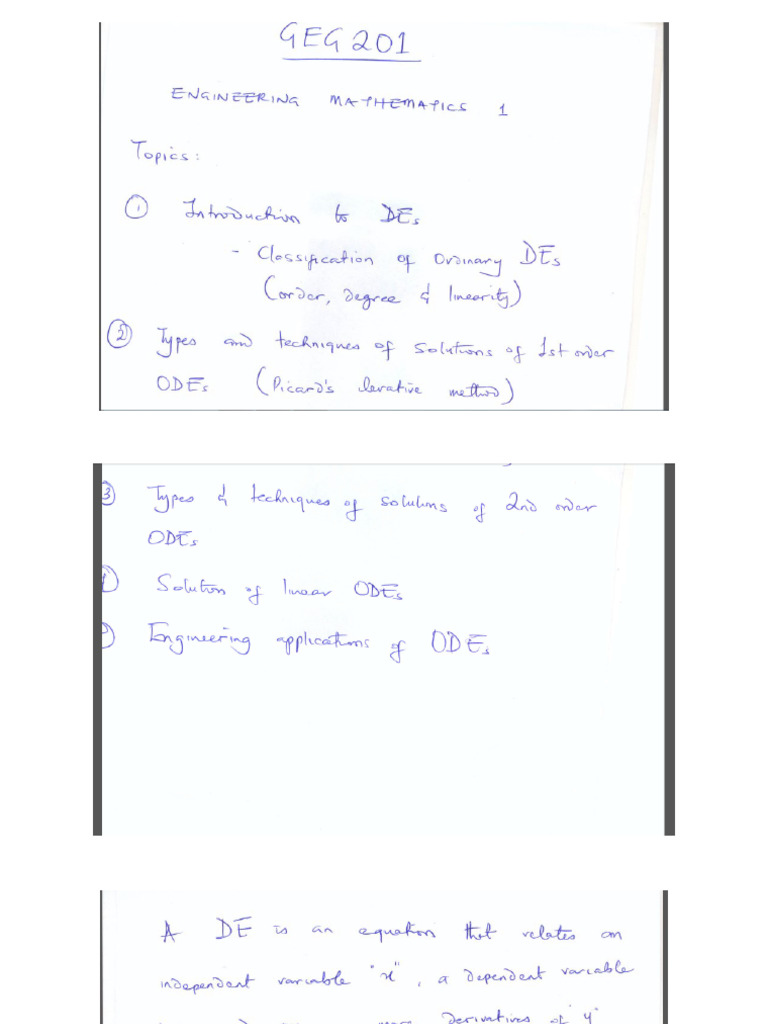 GEG 201
ENGINEERING MATHEMATICS 1
Topics:
① Introduction to DEs
- Classification of Ordinary DEs
(order, degree & linearity)
② Types and techniques of solutions of 1st order
ODEs (Picard's Iterative method)
③ Types & techniques of solutions of 2nd order
ODEs
Solution of linear ODEs
Engineering applications of ODEs
A DE is an equation that relates an
independent variable "x", a dependent variable
more derivatives of "y"